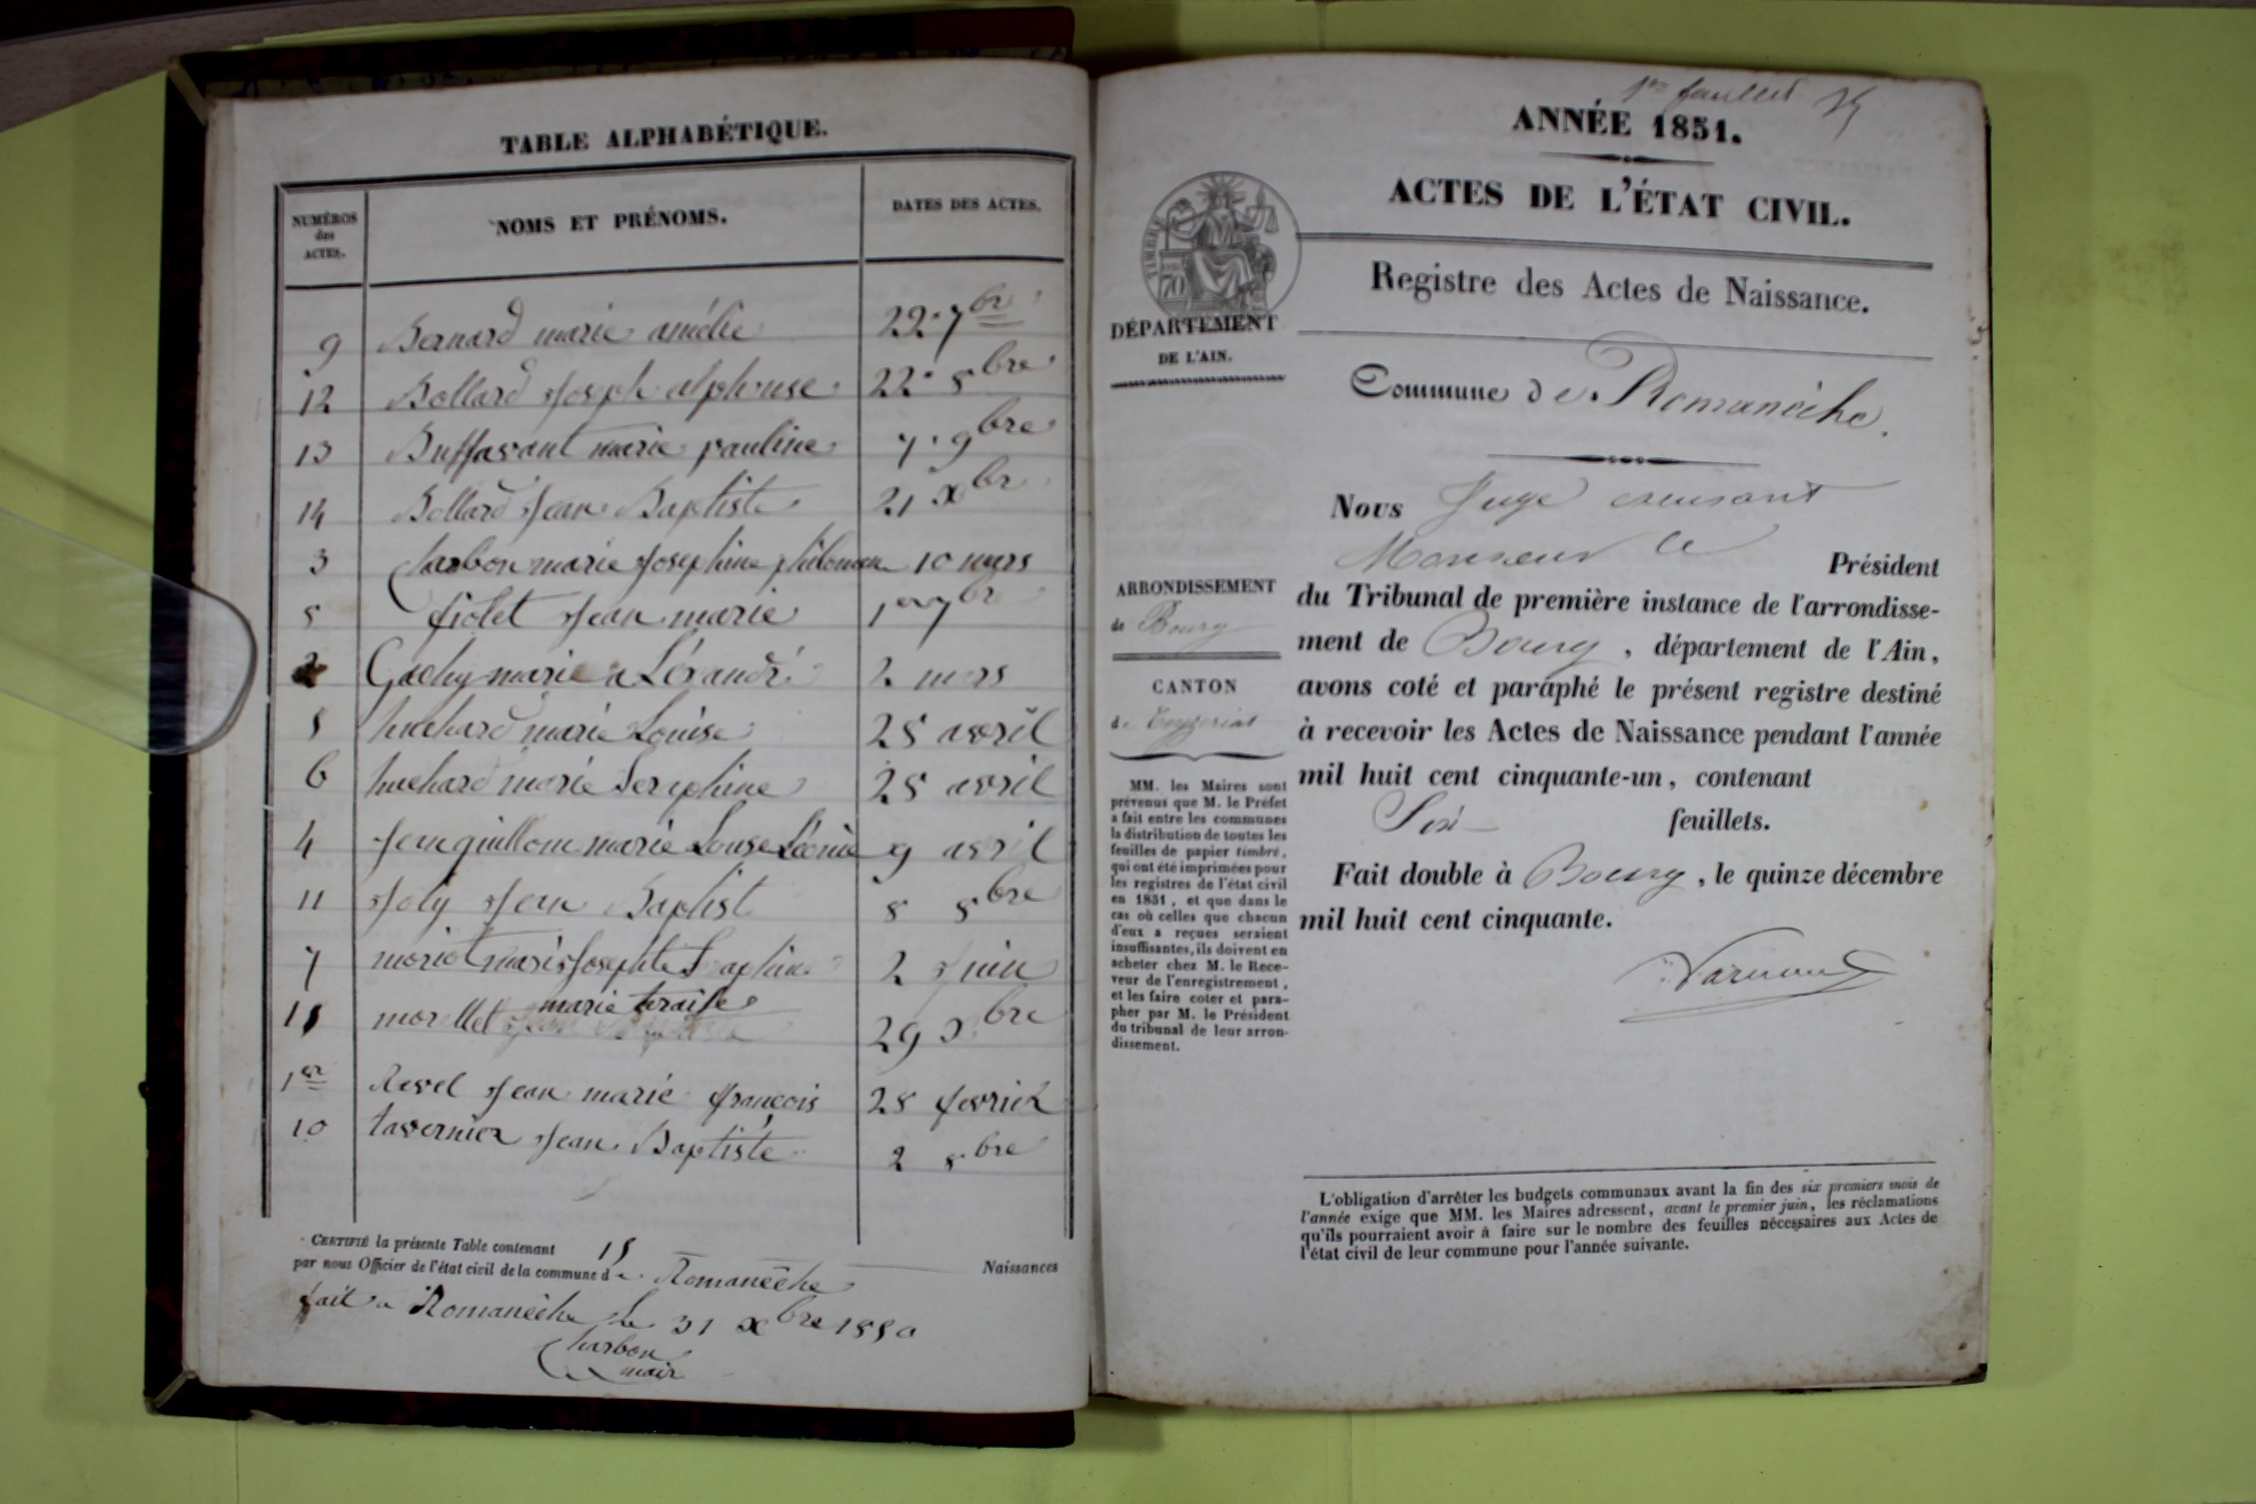 TABLE ALPHABÉTIQUE.
NUMÉROS des ACTES. NOMS ET PRÉNOMS. DATES DES ACTES.
9 Bernard marie amélie 22. 7bre
12 Bollard Joseph alphonse 22. 8bre
13 Buffavant marie pauline 7. 9bre
14 Bollard Jean Baptiste 21 Xbre
3 Charbon marie Josephine philomene 10 mars
8 fiolet Jean marie 1er 7bre
2 Gachy marie 2 mars
5 huchard marie Louise 25 avril
6 huchard marie Seraphine 25 avril
4 Jeanguillome marie Louse Léonie 9 avril
11 Joly Jean Baptist 8 8bre
7 moriet marie Josephte 2 Juin
15 morellet marie teraise 29 Xbre
1er Revel Jean marie françois 28 fevrier
10 tavernier Jean Baptiste 2 8bre
CERTIFIÉ la présente Table contenant 15 Naissances
par nous Officier de l'état civil de la commune de Romanèche
fait a Romanèche le 31 Xbre 1850
Charbon
mair
1er feuillet
ANNÉE 1851.
ACTES DE L'ÉTAT CIVIL.
TIMBRE
70
Registre des Actes de Naissance.
DÉPARTEMENT
DE L'AIN.
Commune de Romanèche.
Nous Juge excusant
Monsieur le Président
ARRONDISSEMENT
de Bourg
CANTON
de Ceyzeriat
du Tribunal de première instance de l'arrondisse-
ment de Bourg, département de l'Ain,
avons coté et paraphé le présent registre destiné
à recevoir les Actes de Naissance pendant l'année
mil huit cent cinquante-un, contenant
Six feuillets.
Fait double à Bourg, le quinze décembre
mil huit cent cinquante.
MM. les Maires sont
prévenus que M. le Préfet
a fait entre les communes
la distribution de toutes les
feuilles de papier timbré,
qui ont été imprimées pour
les registres de l'état civil
en 1851, et que dans le
cas où celles que chacun
d'eux a reçues seraient
insuffisantes, ils doivent en
acheter chez M. le Rece-
veur de l'enregistrement,
et les faire coter et para-
pher par M. le Président
du tribunal de leur arron-
dissement.
L'obligation d'arrêter les budgets communaux avant la fin des six premiers mois de
l'année exige que MM. les Maires adressent, avant le premier juin, les réclamations
qu'ils pourraient avoir à faire sur le nombre des feuilles nécessaires aux Actes de
l'état civil de leur commune pour l'année suivante.